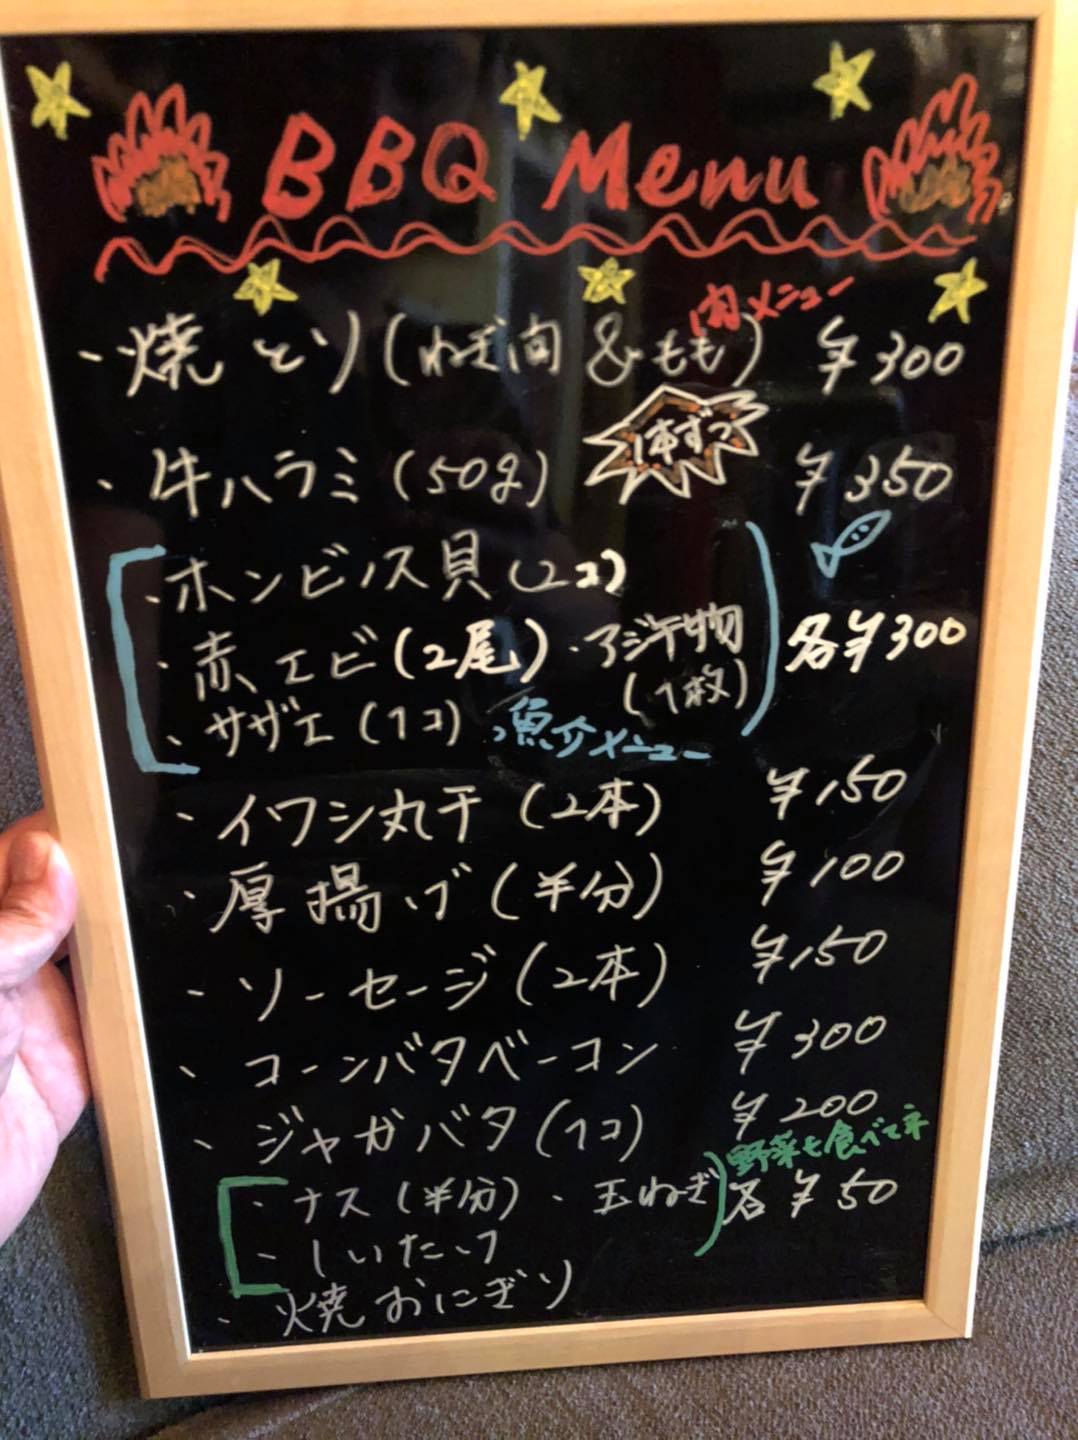 BBQ Menu
肉メニュー
・焼とり(ねぎ肉&もも) ¥300
1本ずつ
・牛ハラミ(50g) ¥350
・ホンビノス貝(2コ)
・赤エビ(2尾)・アジ干物(1枚) 各¥300
・サザエ(1コ) 魚介メニュー
・イワシ丸干(2本) ¥150
・厚揚げ(半分) ¥100
・ソーセージ(2本) ¥150
・コーンバタベーコン ¥300
・ジャガバタ(1コ) ¥200
野菜も食べてネ
・ナス(半分)・玉ねぎ 各¥50
・しいたけ
・焼おにぎり